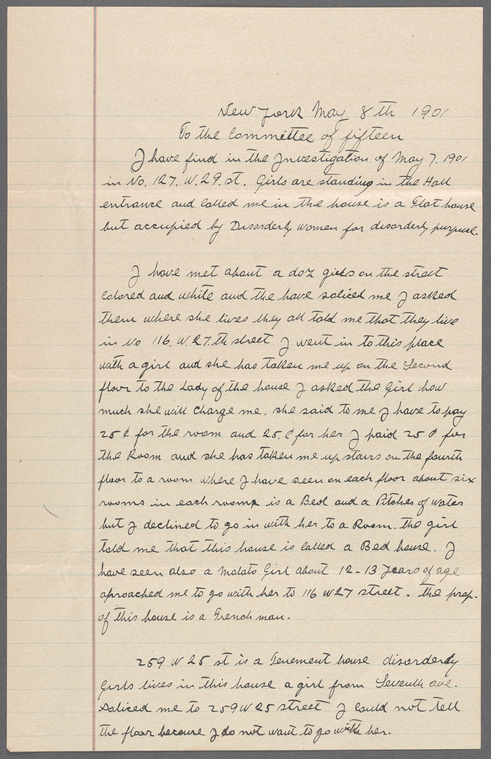 New York May 8th 1901
To the Committee of fifteen
I have find in the Investigation of May 7. 1901
in No. 127. W. 29. st. Girls are standing in the Hall
entrance and called me in the house is a Flat house
but accupied by Disorderly women for disorderly purpuse.
I have met about a doz girls on the street
colored and white and the have soliced me I asked
them where she lives they all told me that they live
in No 116 W 27.th street I went in to this place
with a girl and she has taken me up on the Second
floor to the Lady of the house I asked the Girl how
much she will charge me, she said to me I have to pay
25 ¢ for the room and 25 ¢ for her I paid 25 ¢ for
the Room and she has taken me up stairs on the fourth
floor to a room where I have seen on each floor about six
rooms in each room is a Bed and a Pitcher of water
but I declined to go in with her to a Room. the girl
told me that this house is called a Bed house. I
have seen also a Malato Girl about 12-13 years of age
aproached me to go with her to 116 W 27 street. the prop.
of this house is a French man.
259 W 25 st is a Tenement house disorderly
Girls lives in this house a girl from Seventh ave.
Soliced me to 259 W 25 street I could not tell
the floor because I do not want to go with her.